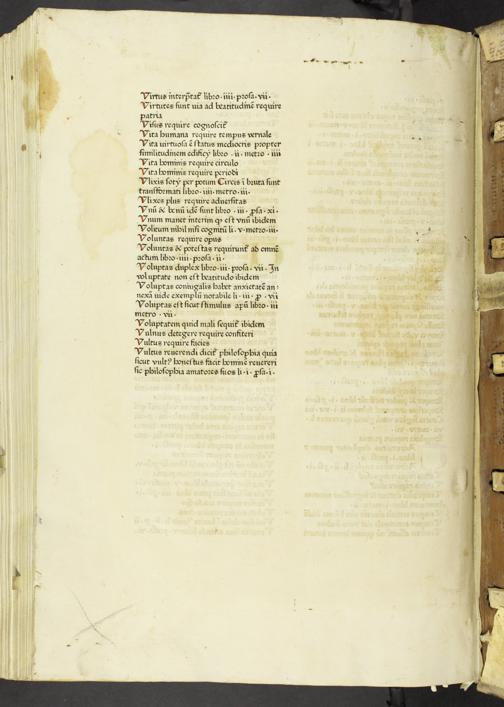 Virtus īterp̄tat᷑ libro ·iiii· prosa ·vii·
Virtutes sunt uia ad beatitudinē require
patria
Visus require cognoscit᷑
Vita humana require tempus vernale
Vita uirtuosa ē status mediocris propter
similitudinem edificÿ libro ·ii· metro ·iiii
Vita hominis require circulo
Vita hominis require periodi
Vlixis sorÿ per potum Circis ī bruta sunt
transformati libro ·iiii· metro ·iii·
Vlixes plus require aduersitas
Vnū & bonū idē sunt libro ·iii· p̱sa ·xi·
Vnum manet interim qꝫ est vnū ibidem
Volitum nihil nisi cognitū li· v· metro ·iii·
Voluntas require opus
Voluntas & potestas requirunt᷑ ab omnē
actum libro ·iiii· prosa ·ii·
Voluptas duplex libro ·iii· prosa ·vii· In
voluptate non est beatitudo ibidem
Voluptas coniugalis habet anxietatē an-
nexā uide exemplū notabile li· iii· p̱· vii
Voluptas est sicut stimulus apū libro ·iii
metro ·vii·
Voluptatem quid mali sequit᷑ ibidem
Vulnus detegere require confiteri
Vultus require facies
Vultus reuerendi dicit᷑ philosophia quia
sicut vult⁹ honestus facit hominē reuereri
sic philosophia amatores suos li· i· p̱sa ·i·